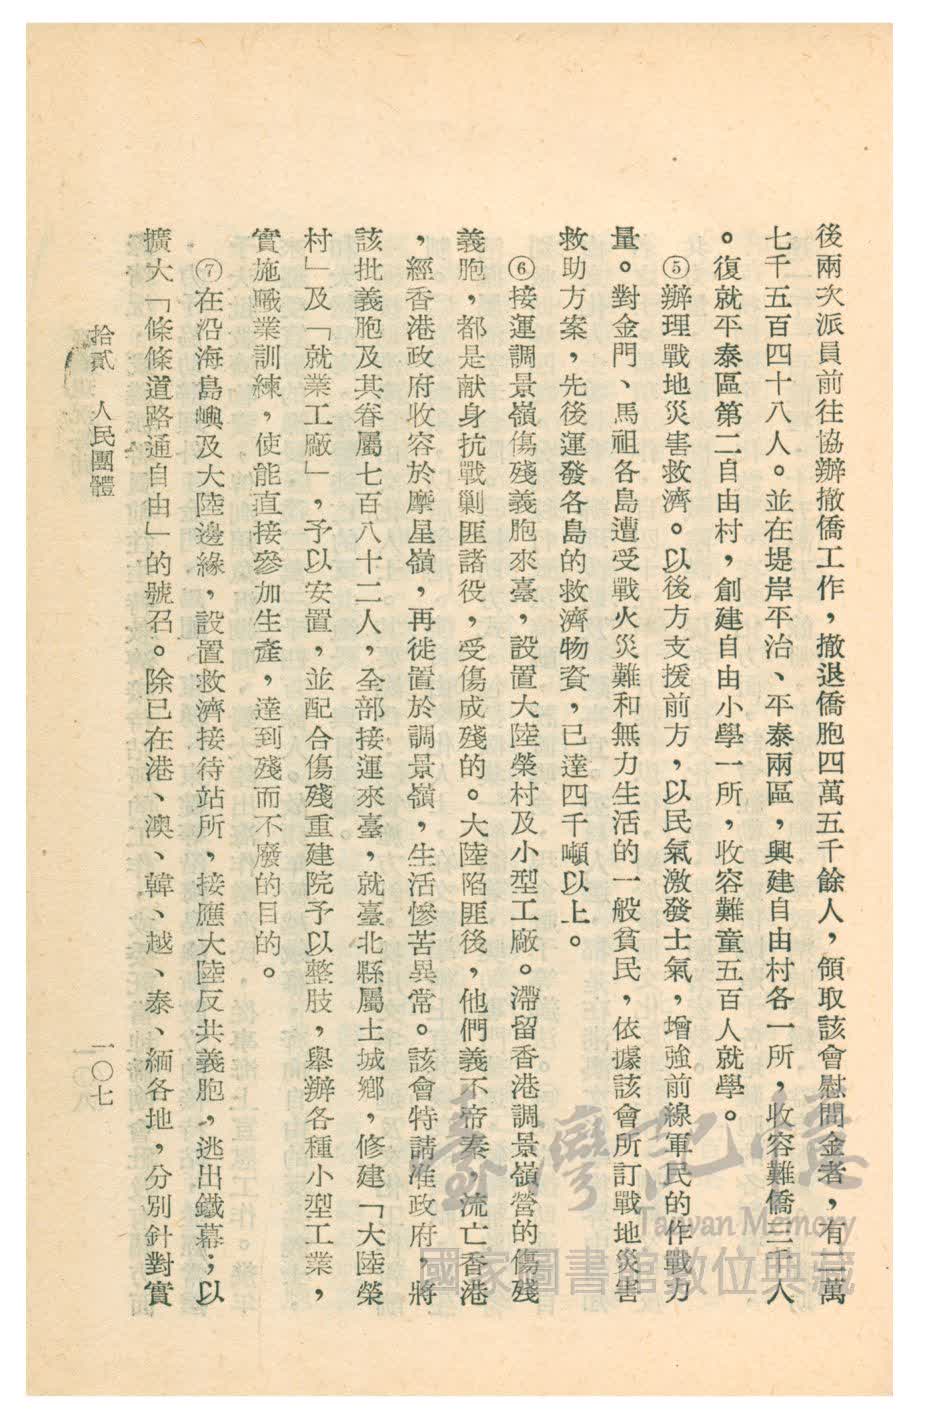 後兩次派員前往協辦撤僑工作，撤退僑胞四萬五千餘人，領取該會慰問金者，有二萬
七千五百四十八人。並在堤岸平治、平泰兩區，興建自由村各一所，收容難僑三千人
。復就平泰區第二自由村，創建自由小學一所，收容難童五百人就學。
⑤辦理戰地災害救濟。以後方支援前方，以民氣激發士氣，增強前線軍民的作戰力
量。對金門、馬祖各島遭受戰火災難和無力生活的一般貧民，依據該會所訂戰地災害
救助方案，先後運發各島的救濟物資，已達四千噸以上。
⑥接運調景嶺傷殘義胞來臺，設置大陸榮村及小型工廠。滯留香港調景嶺營的傷殘
義胞，都是献身抗戰剿匪諸役，受傷成殘的。大陸陷匪後，他們義不帝秦，流亡香港
，經香港政府收容於摩星嶺，再徙置於調景嶺，生活慘苦異常。該會特請准政府，將
該批義胞及其眷屬七百八十二人，全部接運來臺，就臺北縣屬土城鄉，修建「大陸榮
村」及「就業工廠」，予以安置，並配合傷殘重建院予以整肢，舉辦各種小型工業，
實施職業訓練，使能直接參加生產，達到殘而不廢的目的。
⑦在沿海島嶼及大陸邊緣，設置救濟接待站所，接應大陸反共義胞，逃出鐵幕；以
擴大「條條道路通自由」的號召。除已在港、澳、韓、越、泰、緬各地，分別針對實
拾貳　人民團體
一〇七
臺灣記憶
Taiwan Memory
國家圖書館數位典藏